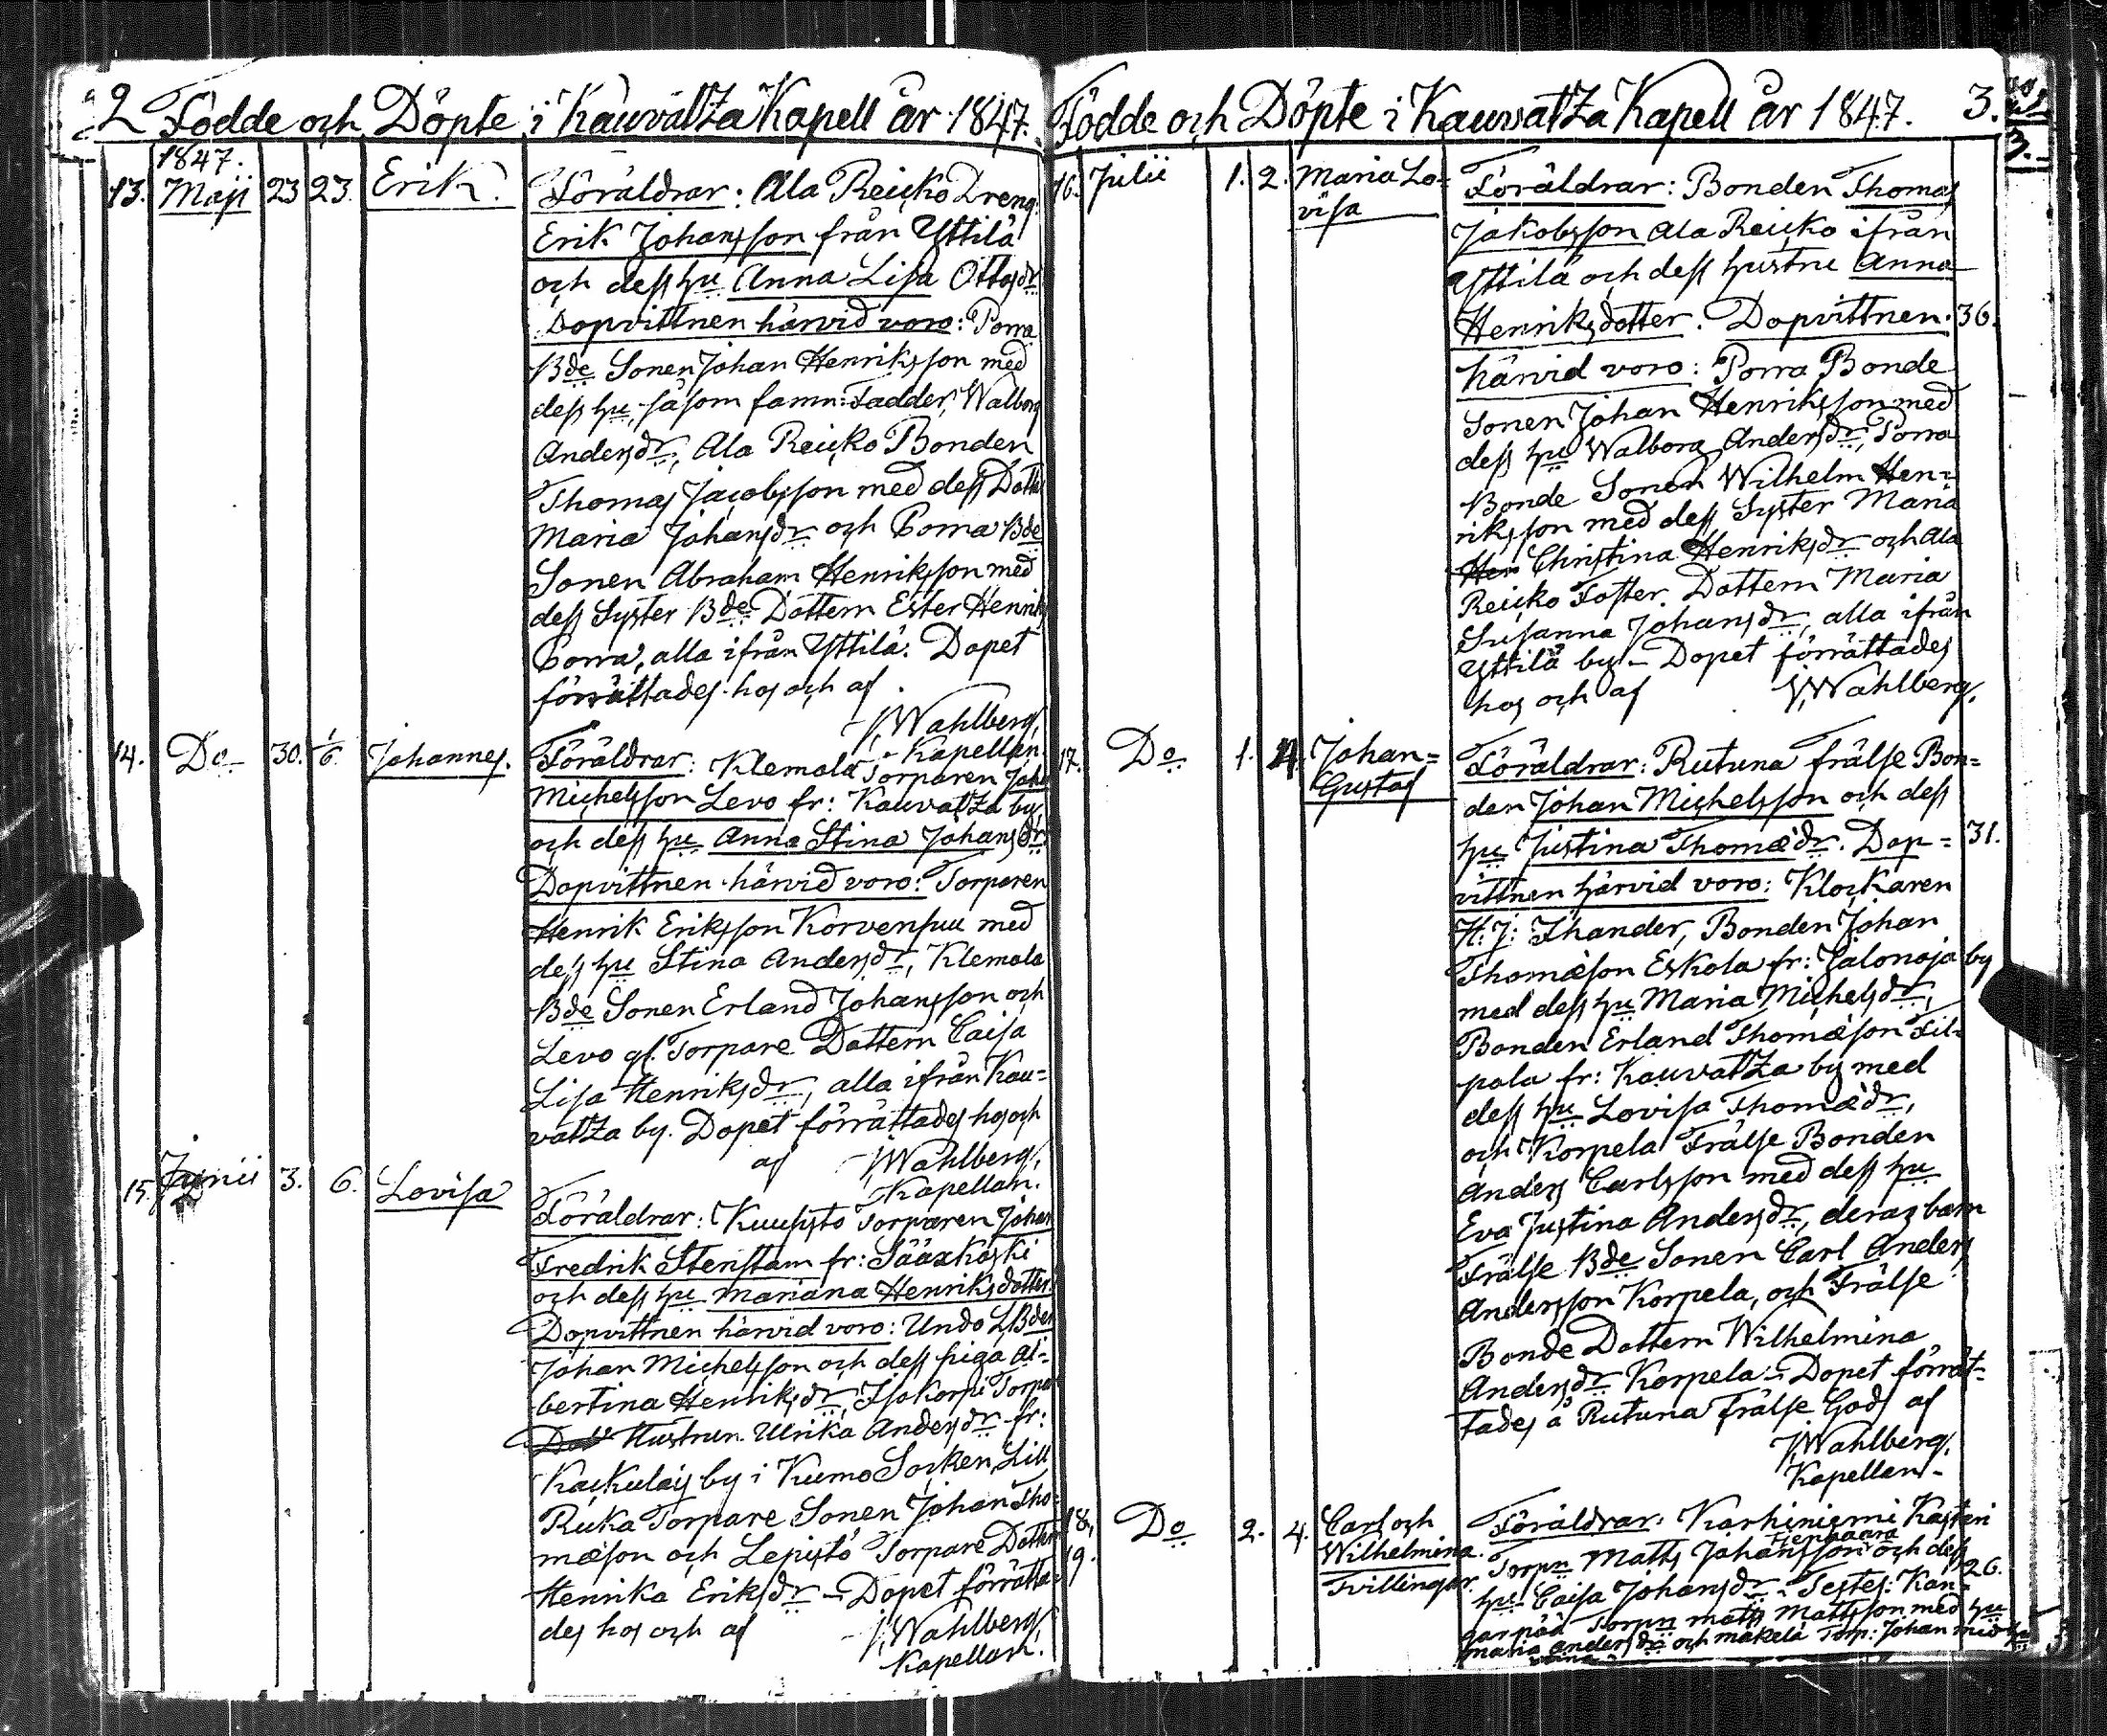 2 Födde och Döpte i Kauvatza Kapell år 1847.
1847.
13. Maji 23 23. Erik. Föräldrar: Ala Reicko Dreng.
Erik Johansson från Yttilä
och dess hu Anna Lisa Ottosdr
Dopvittnen härvid voro: Porra
Bde Sonen Johan Henriksson med
dess hu såsom famn: Fadder, Walborg
Andersdr, Ala Reicko Bonden
Thomas Jacobsson med dess Dotter
Maria Johansdr och Porra Bde
Sonen Abraham Henriksson med
dess Syster Bde Dottern Ester Henriks
Porra, alla ifrån Yttilä. Dopet
förrättades hos och af
J. Wahlberg,
Kapellan.
14. Do 30. 1/6. Johannes. Föräldrar: Klemola Torparen Joha
Michelsson Levo fr: Kauvatza by
och dess hu Anna Stina Johansdr
Dopvittnen härvid voro: Torparen
Henrik Eriksson Korvenpuu med
dess hu Stina Andersdr, Klemola
Bde Sonen Erland Johansson och
Levo gl. Torpare Dottern Caisa
Lisa Henriksdr, alla ifrån Kau=
vatza by. Dopet förrättades hos och
af J. Wahlberg,
Kapellan.
15. Junii 3. 6. Lovisa Föräldrar: Kuusisto Torparen Johan
Fredrik Stenstam fr: Sääxkoski
och dess hu Mariana Henriksdotter.
Dopvittnen härvid voro: Undo LBden
Johan Michelsson och dess piga Al=
bertina Henriksdr, Isokorpi Torpar
Hustrun Ulrika Andersdr fr:
Kackulais by i Kumo Socken, Lill
Ruka Torpare Sonen Johan Tho=
mæson och Lepistö Torpare Dottern
Henrika Eriksdr – Dopet förrätta=
des hos och af J. Wahlberg,
Kapellan.
Födde och Döpte i Kauvatza Kapell år 1847. 3.
3.
16. Julii 1. 2. Maria Lo= Föräldrar: Bonden Thomas
visa Jakobsson Ala Reicko ifrån
Yttilä och dess hustru Anna
Henriksdotter. Dopvittnen 36.
härvid voro: Porra Bonde
Sonen Johan Henriksson med
dess hu Walborg Andersdr, Porra
Bonde Sonen Wilhelm Hen=
riksson med dess Syster Maria
Her Christina Henriksdr och Ala
Reicko Foster Dottern Maria
Susanna Johansdr, alla ifrån
Yttilä by – Dopet förrättades
hos och af J. Wahlberg.
17. Do 1. 4. Johan= Föräldrar: Rutuna Frälse Bon=
Gustaf den Johan Michelsson och dess
hu Justina Thomædr. Dop= 31.
vittnen härvid voro: Klockaren
H: J: Thander, Bonden Johan
Thomæson Eskola fr: Jalonoja by
med dess hu Maria Michelsdr,
Bonden Erland Thomæson Fil=
pola fr: Kauvatza by med
dess hu Lovisa Thomædr,
och Korpela Frälse Bonden
Anders Carlsson med dess hu
Eva Justina Andersdr, deras barn
Frälse Bde Sonen Carl Anders
Andersson Korpela, och Frälse
Bonde Dottern Wilhelmina
Andersdr Korpela – Dopet förrät=
tades å Rutuna Frälse Gods af
J. Wahlberg,
Kapellan –
18. Do 2. 4. Carl och Föräldrar: Karhiniemi Kasteri
19. Wilhelmina. Torpn Matts Johansson och dess
Tvillingar. hu Caisa Johansdr – Testes: Kan= 26.
garpää Torpn Matts Mattsson med hu
Maria Andersdr och Mäkelä Torp: Johan med hu